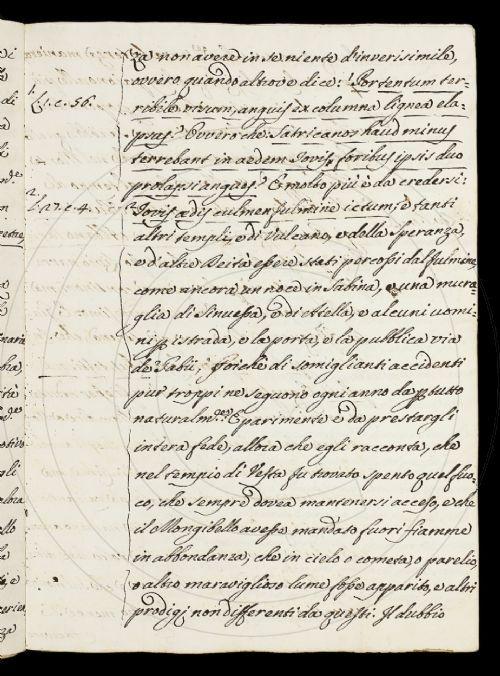 za non avere in se niente d'inverisimile,
ovvero quando altrove dice: Portentum ter-
1. L.1. c. 56.
ribile visum, anguis ex columna lignea ela-
psus? Ovvero che Satricanos haud minus
terrebant in aedem Iovis, foribus ipsis duo
prolapsi angues? E molto più è da credersi:
2. L. 27. c. 4.
Iovis aedis culmen fulmine ictum; e tanti
altri templi, e di Vulcano, e della Speranza,
e d'altre Deità essere stati percossi dal fulmine,
come ancora un noce in Sabina, e una mura-
glia di Sinuessa, e di Atella, e alcuni uomi-
ni p istrada, e la porta, e la pubblica via
de' Gabii; poichè di somiglianti accidenti
pur troppi ne seguono ogni anno da p tutto
naturalm.te E parimente è da prestargli
intera fede, allora che egli racconta, che
nel tempio di Vesta fu trovato spento quel fuo-
co, che sempre dovea mantenersi acceso, e che
il Mongibello avesse mandato fuori fiamme
in abbondanza, che in cielo o cometa, o parelio,
o altro maraviglioso lume fosse apparito, e altri
prodigj non differenti da questi. Il dubbio